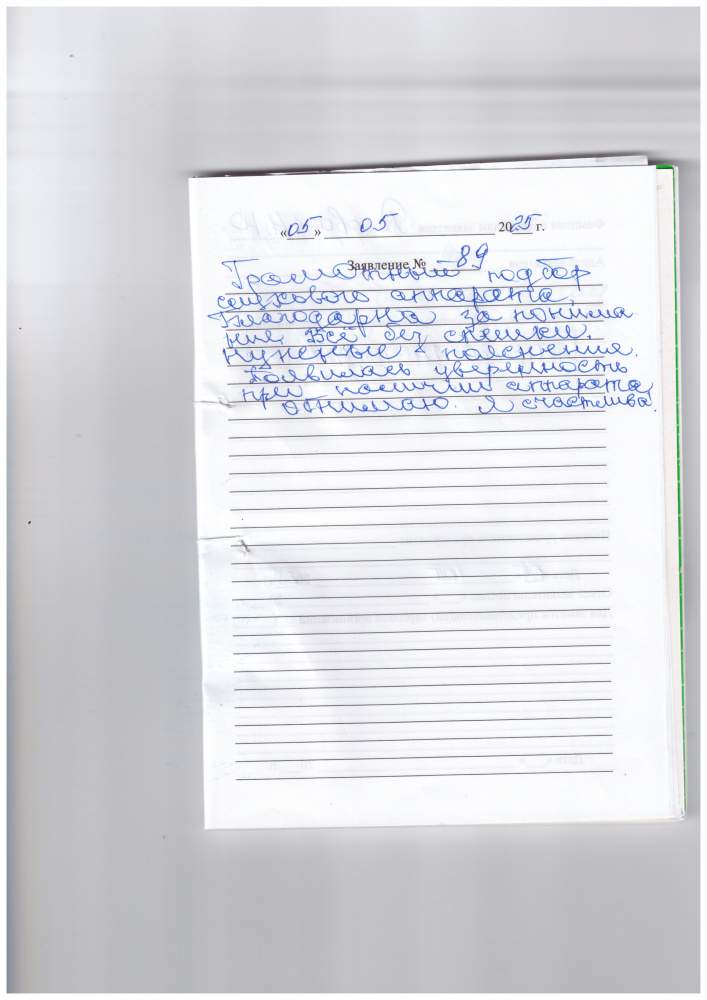 «05» 05 2025 г.
Заявление № 89
Грамотный подбор
слухового аппарата,
Благодарна за понима
ние, Всё без спешки.
Нужные пояснения.
Появилась уверенность
при наличии аппарата,
обнимаю. Я счастлива.